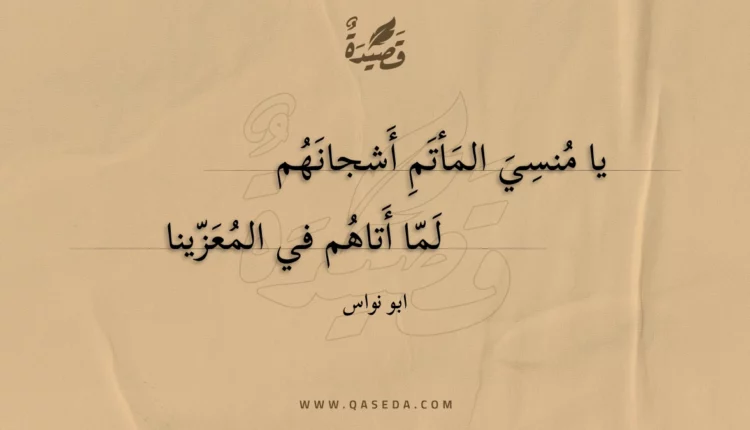 قَصِيدَةٌ
يا مُنسِيَ المَأتَمِ أَشجانَهُم
لَمّا أَتاهُم في المُعَزّينا
ابو نواس
WWW.QASEDA.COM